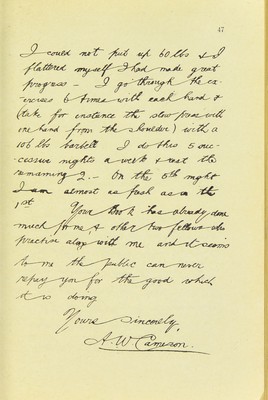 47
I could not put up 60 lbs & I
flattered myself I had made great
progress - I go through the ex-
ercises 6 times with each hand &
(take for instance the slow press with
one hand from the shoulder) with a
106 lbs barbell I do this 5 suc-
cessive nights a week & rest the
remaining 2. - On the 5th night
I am almost as fresh as on the
1st Your book has already done
much for me & other two fellows who
practise along with me and it seems
to me the public can never
repay you for the good which
it is doing
Yours sincerely,
A. W. Cameron.